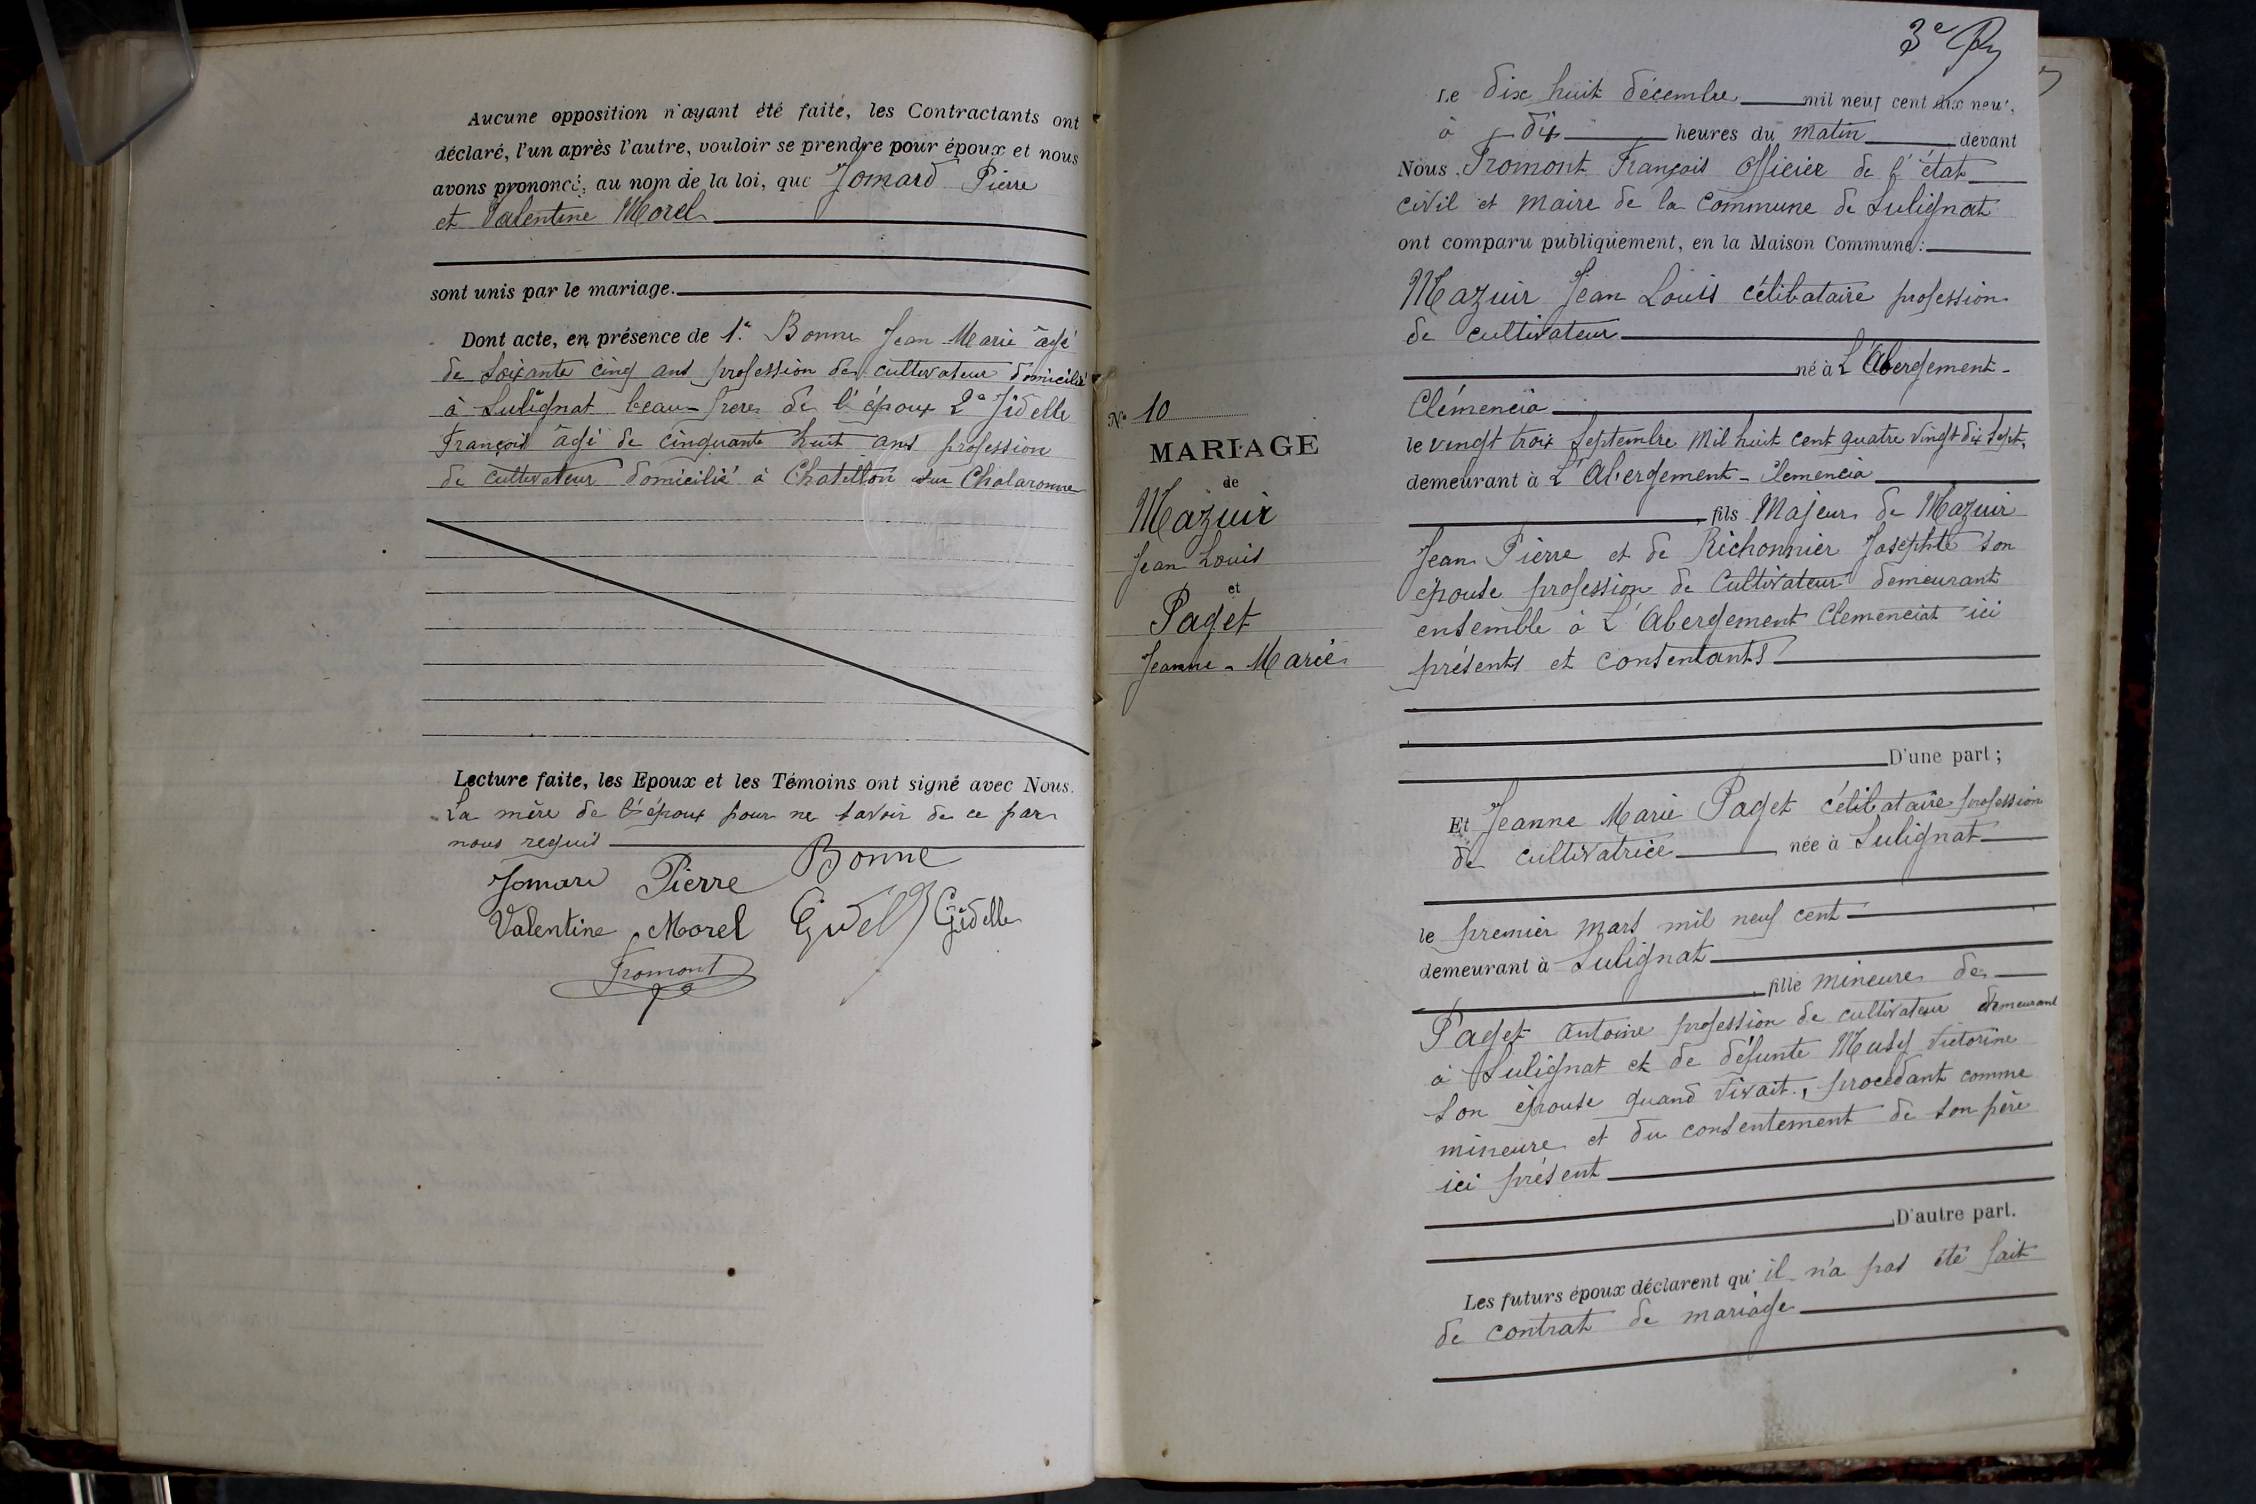 Aucune opposition n'ayant été faite, les Contractants ont
déclaré, l'un après l'autre, vouloir se prendre pour époux et nous
avons prononcé, au nom de la loi, que Jomard Pierre
et Valentine Morel
sont unis par le mariage.
Dont acte, en présence de 1° Bonne Jean Marie âgé
de soixante cinq ans profession de cultivateur domicilié
à Sulignat beau-frere de l'époux 2° Jidelle
François âgé de cinquante huit ans profession
de cultivateur domicilié à Chatillon sur Chalaronne
Lecture faite, les Epoux et les Témoins ont signé avec Nous.
La mère de l'époux pour ne savoir de ce par
nous requis
Jomard Pierre Bonne
Valentine Morel Gidelle
Fromont
3e
Le dix huit décembre mil neuf cent dix neuf,
à dix heures du matin devant
Nous Fromont Français Officier de l'état
civil et maire de la commune de Sulignat
ont comparu publiquement, en la Maison Commune :
Mazuir Jean Louis célibataire profession
de cultivateur
né à L'Abergement-
Clémencia
le vingt trois septembre mil huit cent quatre vingt dix sept,
demeurant à L'Abergement-Clemencia
fils Majeur de Mazuir
Jean Pierre et de Richonnier Josephte son
épouse profession de Cultivateur demeurant
ensemble à L'Abergement Clemenciat ici
présents et consentants
D'une part ;
Et Jeanne Marie Paget célibataire profession
de cultivatrice née à Sulignat
le premier mars mil neuf cent
demeurant à Sulignat
fille mineure de
Paget antoine profession de cultivateur demeurant
à Sulignat et de défunte Musy Victorine
son épouse quand vivait, procédant comme
mineure et du consentement de son père
ici présent
D'autre part.
Les futurs époux déclarent qu'il n'a pas été fait
de contrat de mariage
N° 10
MARIAGE
de
Mazuir
Jean Louis
et
Paget
Jeanne-Marie